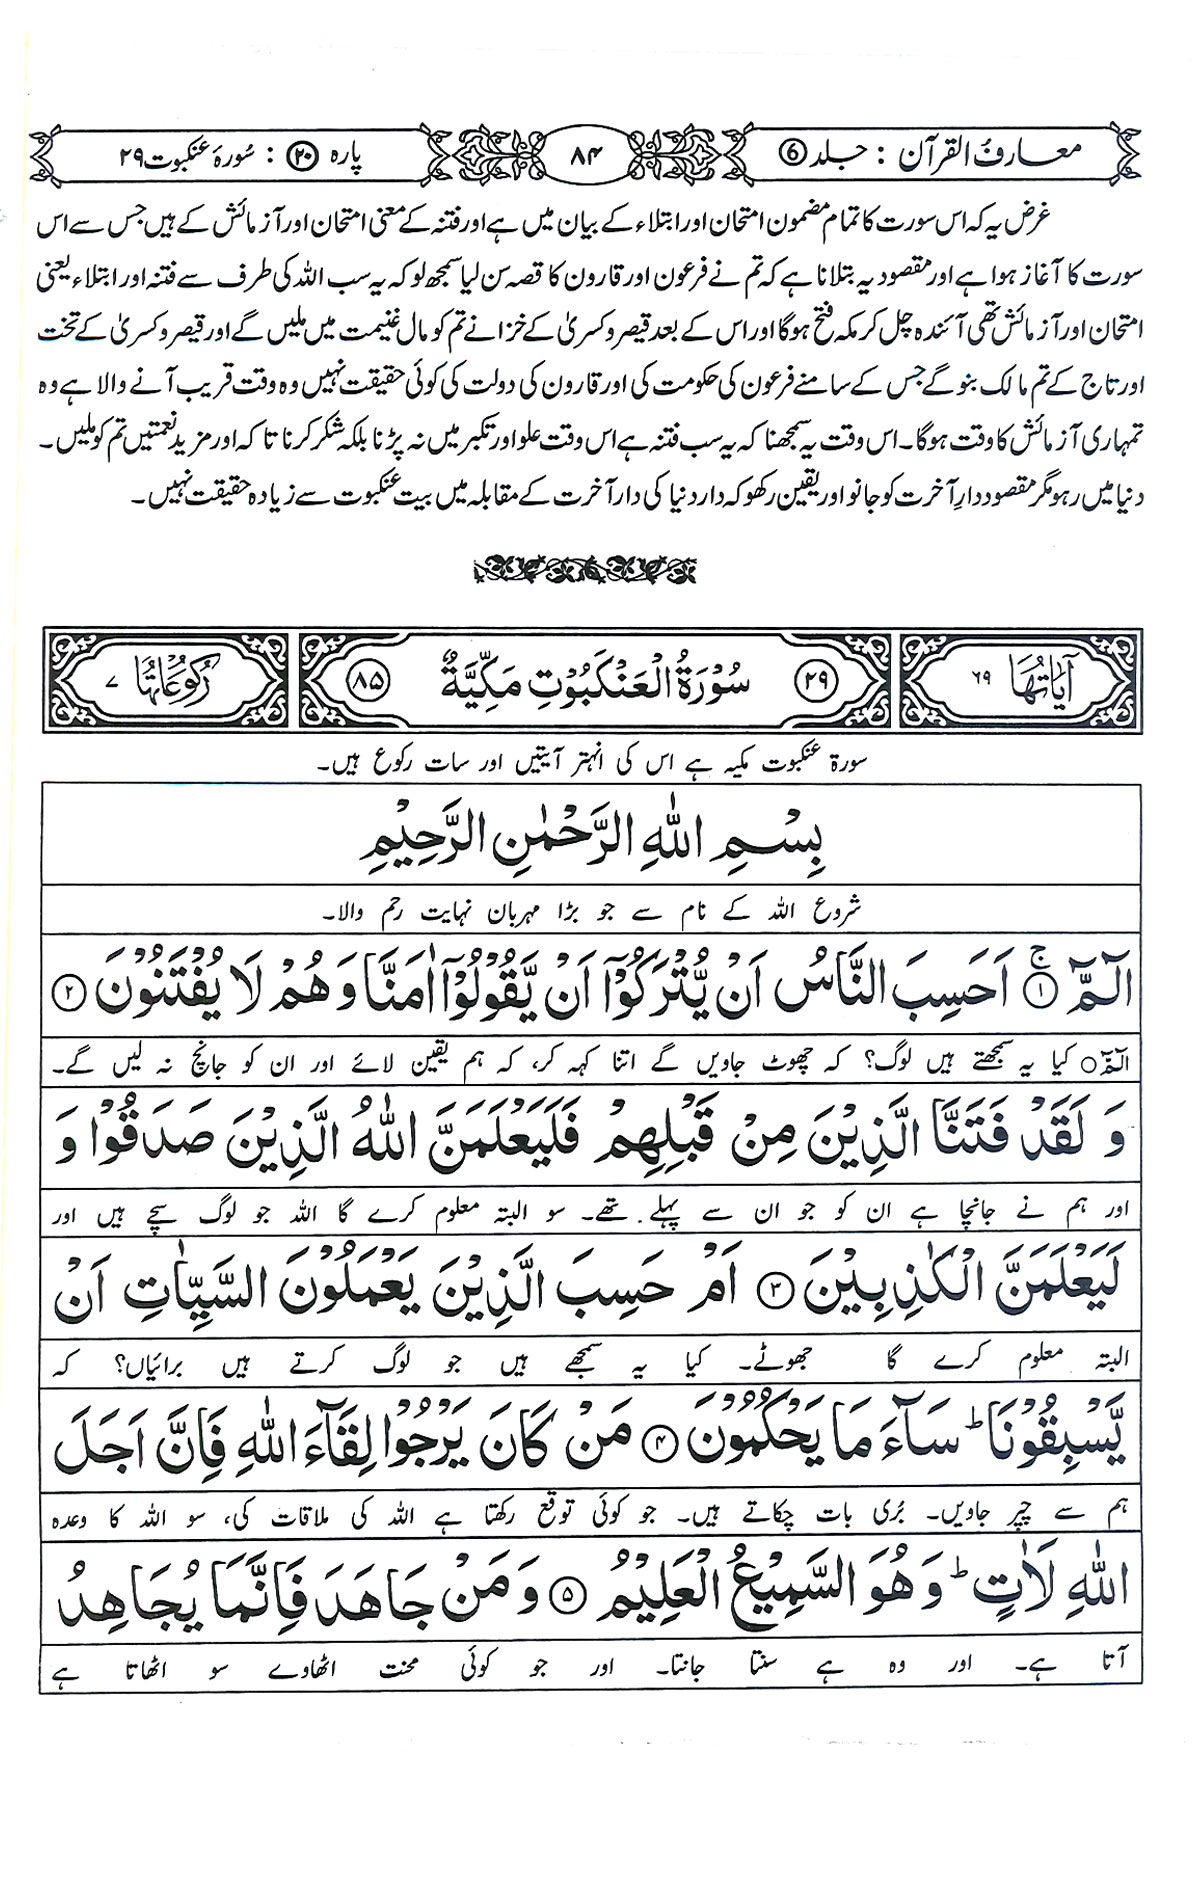 معارف القرآن : جلد ⑥
۸۴
پارہ ⑳ : سُورۂ عنکبوت ۲۹
غرض یہ کہ اس سورت کا تمام مضمون امتحان اور ابتلاء کے بیان میں ہے اور فتنہ کے معنی امتحان اور آزمائش کے ہیں جس سے اس
سورت کا آغاز ہوا ہے اور مقصود یہ بتلانا ہے کہ تم نے فرعون اور قارون کا قصہ سن لیا سمجھ لو کہ یہ سب اللہ کی طرف سے فتنہ اور ابتلاء یعنی
امتحان اور آزمائش تھی آئندہ چل کر مکہ فتح ہوگا اور اس کے بعد قیصر و کسریٰ کے خزانے تم کو مال غنیمت میں ملیں گے اور قیصر و کسریٰ کے تخت
اور تاج کے تم مالک بنو گے جس کے سامنے فرعون کی حکومت کی اور قارون کی دولت کی کوئی حقیقت نہیں وہ وقت قریب آنے والا ہے وہ
تمہاری آزمائش کا وقت ہوگا۔ اس وقت یہ سمجھنا کہ یہ سب فتنہ ہے اس وقت علو اور تکبر میں نہ پڑنا بلکہ شکر کرنا تاکہ اور مزید نعمتیں تم کو ملیں۔
دنیا میں رہو مگر مقصود دارِ آخرت کو جانو اور یقین رکھو کہ دار دنیا کی دار آخرت کے مقابلہ میں بیت عنکبوت سے زیادہ حقیقت نہیں۔
اٰیَاتُهَا ۶۹
۲۹ سُوْرَةُ الْعَنْكَبُوْتِ مَكِّيَّةٌ ۸۵
رُكُوْعَاتُهَا ۷
سورۃ عنکبوت مکیہ ہے اس کی انہتر آیتیں اور سات رکوع ہیں۔
بِسْمِ اللّٰهِ الرَّحْمٰنِ الرَّحِیْمِ
شروع اللہ کے نام سے جو بڑا مہربان نہایت رحم والا۔
الٓمّٓ ۚ﴿۱﴾ اَحَسِبَ النَّاسُ اَنْ یُّتْرَكُوْۤا اَنْ یَّقُوْلُوْۤا اٰمَنَّا وَ هُمْ لَا یُفْتَنُوْنَ ﴿۲﴾
الٓمّٓ ○ کیا یہ سمجھتے ہیں لوگ؟ کہ چھوٹ جاویں گے اتنا کہہ کر، کہ ہم یقین لائے اور ان کو جانچ نہ لیں گے۔
وَ لَقَدْ فَتَنَّا الَّذِیْنَ مِنْ قَبْلِهِمْ فَلَیَعْلَمَنَّ اللّٰهُ الَّذِیْنَ صَدَقُوْا وَ
اور ہم نے جانچا ہے ان کو جو ان سے پہلے تھے۔ سو البتہ معلوم کرے گا اللہ جو لوگ سچے ہیں اور
لَیَعْلَمَنَّ الْكٰذِبِیْنَ ﴿۳﴾ اَمْ حَسِبَ الَّذِیْنَ یَعْمَلُوْنَ السَّیِّاٰتِ اَنْ
البتہ معلوم کرے گا جھوٹے۔ کیا یہ سمجھے ہیں جو لوگ کرتے ہیں برائیاں؟ کہ
یَّسْبِقُوْنَا ؕ سَآءَ مَا یَحْكُمُوْنَ ﴿۴﴾ مَنْ كَانَ یَرْجُوْا لِقَآءَ اللّٰهِ فَاِنَّ اَجَلَ
ہم سے چِپر جاویں۔ بُری بات چکاتے ہیں۔ جو کوئی توقع رکھتا ہے اللہ کی ملاقات کی، سو اللہ کا وعدہ
اللّٰهِ لَاٰتٍ ؕ وَ هُوَ السَّمِیْعُ الْعَلِیْمُ ﴿۵﴾ وَ مَنْ جَاهَدَ فَاِنَّمَا یُجَاهِدُ
آتا ہے۔ اور وہ ہے سنتا جانتا۔ اور جو کوئی محنت اٹھاوے سو اٹھاتا ہے